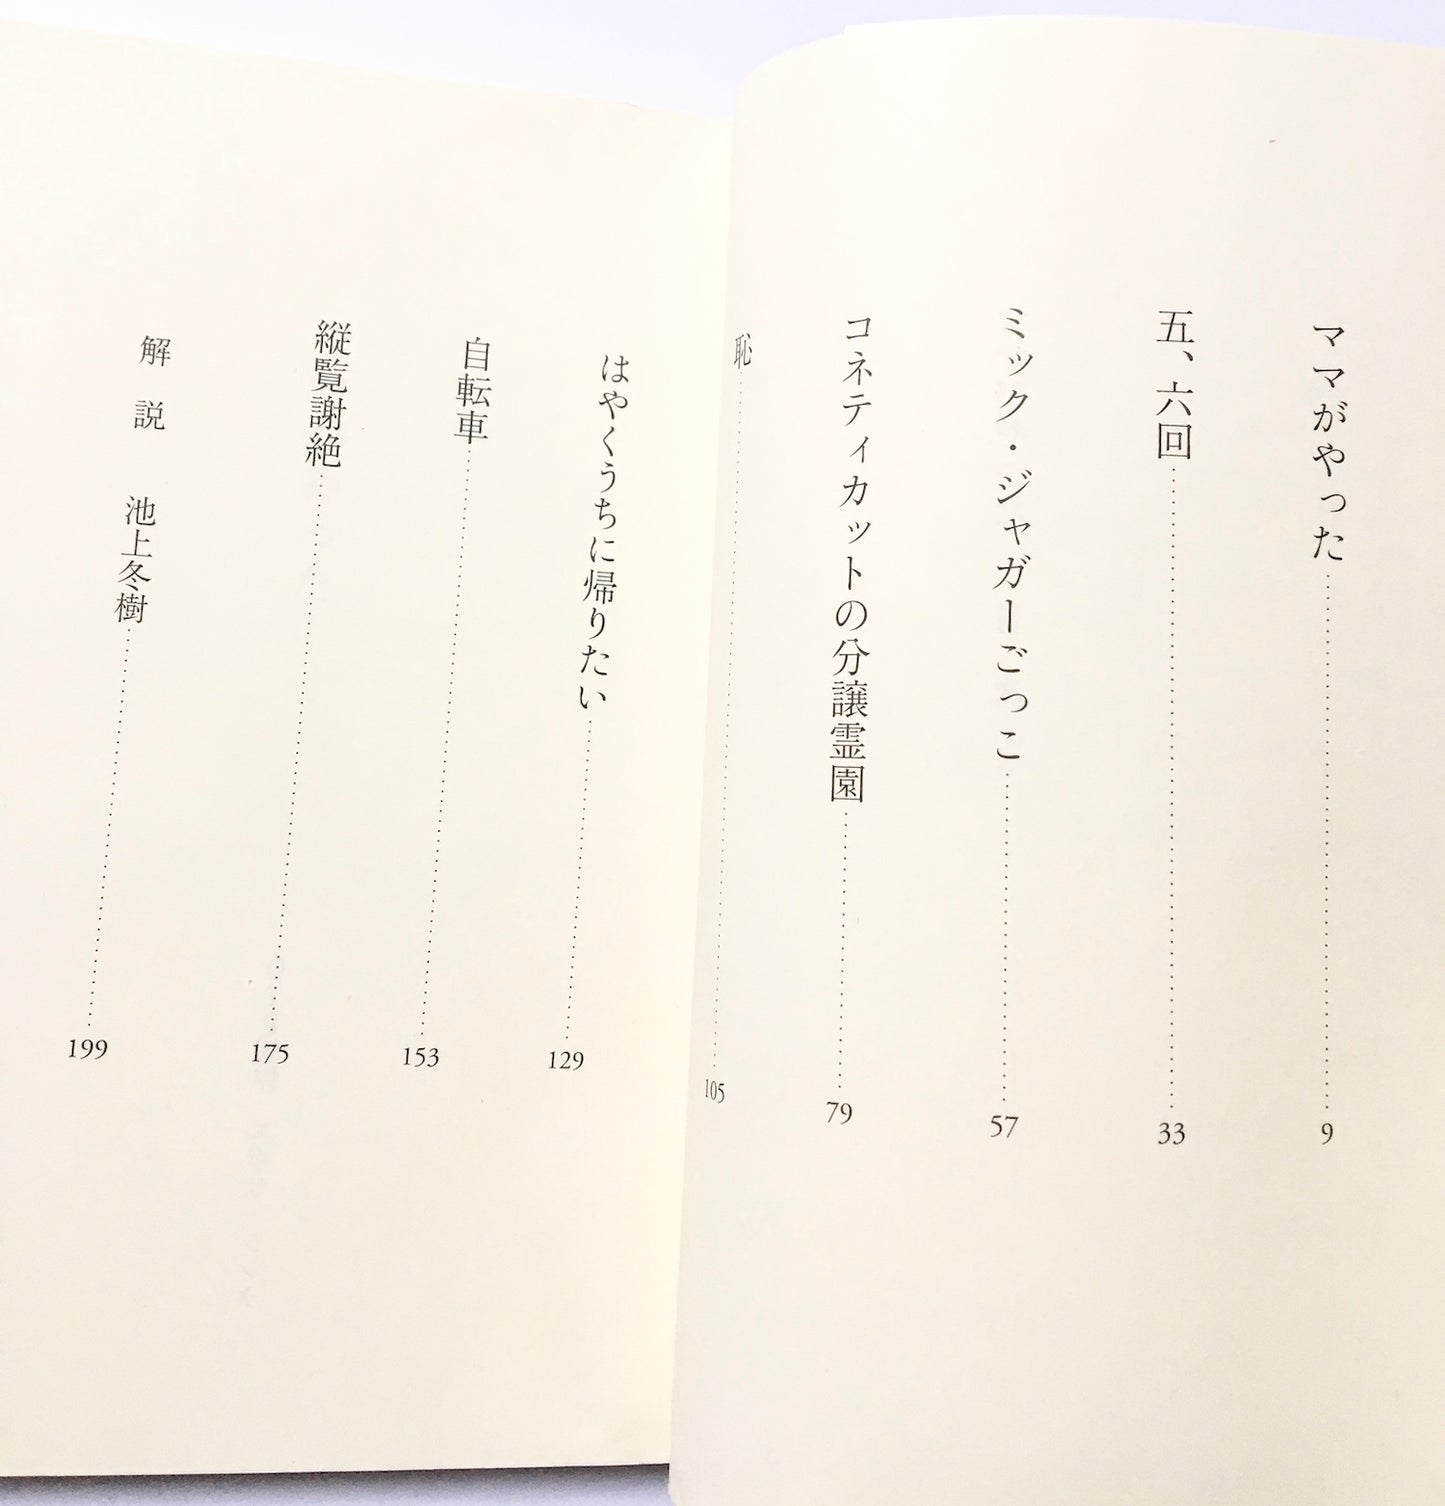 ママがやった……9
五、六回……33
ミック・ジャガーごっこ……57
コネティカットの分譲霊園……79
恥……105
はやくうちに帰りたい……129
自転車……153
縦覧謝絶……175
解説 池上冬樹……199